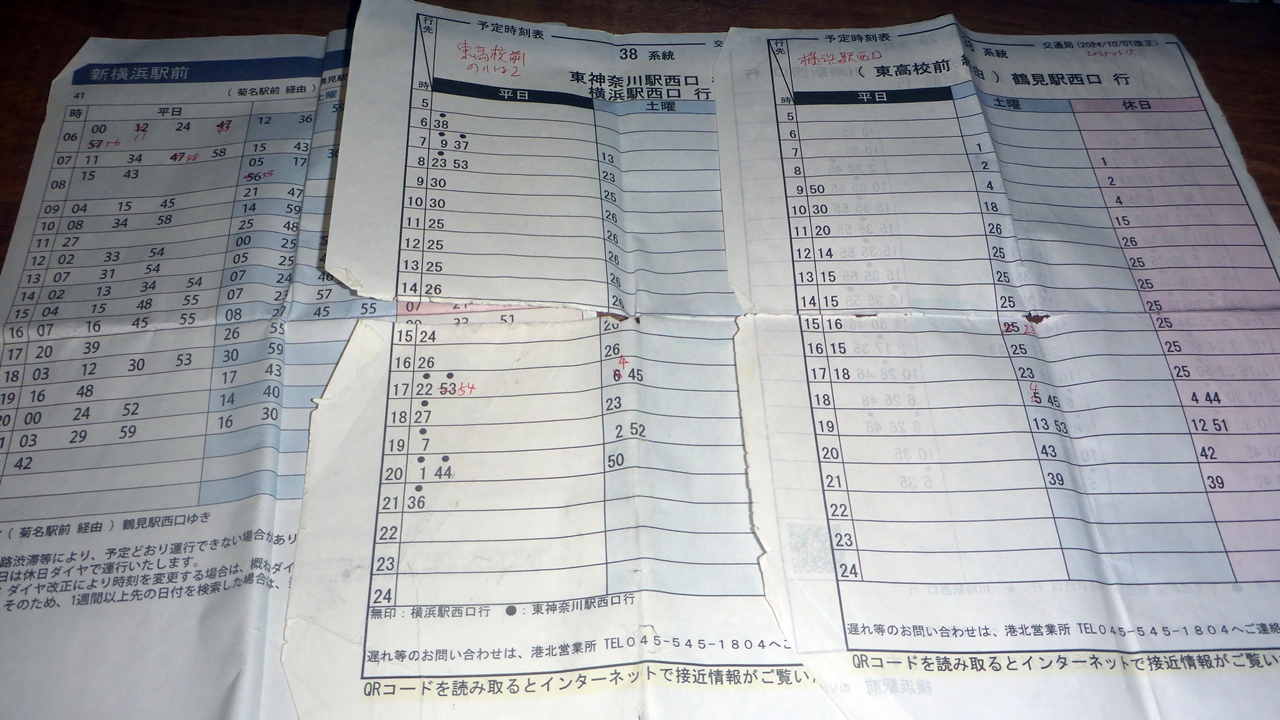 新横浜駅前
41
（ 菊名駅前 経由 ）
時 平日 土曜
06 00 12 24 47 12 36
57
07 11 34 47 58 15 43
08 15 43 05 17
56
21 47
09 04 15 45 14 59
10 08 34 58 25 48
11 27 00 25
12 02 33 54 05 25
13 07 31 54 07 24
14 02 13 34 54 07 27 57
15 04 15 48 55 08 27 45 55
16 07 16 45 55 26 55
17 20 39 30 59
18 03 12 30 53 17 43
19 16 48 14 40
20 00 24 52 16 30
03 29 59
42
（ 菊名駅前 経由 ）鶴見駅西口ゆき
路渋滞等により、予定どおり運行できない場合があり
日は休日ダイヤで運行いたします。
ダイヤ改正により時刻を変更する場合は、概ねダイ
そのため、1週間以上先の日付を検索した場合は、
行先
予定時刻表
38 系統
東高校前
のりば2
東神奈川駅西口
横浜駅西口 行
時 平日 土曜
5
6 38
7 9 37 13
8 23 53 23
9 30 25
10 30 26
11 25 26
12 25 26
13 25 26
14 26 26
15 24 26
16 26 26
17 22 53 54 6 4 45
18 27 23
19 7 2 52
20 1 44 50
21 36
22
23
24
無印：横浜駅西口行 ●：東神奈川駅西口行
遅れ等のお問い合わせは、港北営業所 TEL045-545-1804へご
QRコードを読み取るとインターネットで接近情報がご覧い
行先
予定時刻表
38 系統
交通局(2024/10/01改正)
横浜駅西口
（ 東高校前 経由 ）鶴見駅西口 行
時 平日 土曜 休日
5
6
7 1
8 2 1
9 50 4 2
10 30 18 4
11 20 26 15
12 14 25 26
13 15 25 25
14 15 25 25
15 16 25 25
16 15 25 25
17 18 23 25
18 5 4 45 4 44
19 13 53 12 51
20 43 42
21 39 39
22
23
24
遅れ等のお問い合わせは、港北営業所 TEL045-545-1804へご連絡
QRコードを読み取るとインターネットで接近情報がご覧い